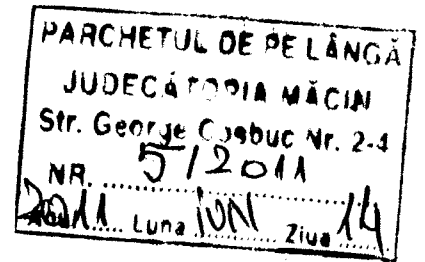 PARCHETUL DE PE LÂNGĂ
JUDECĂTORIA MĂCIN
Str. George Coșbuc Nr. 2-4
NR. 5/2011
2011 Luna IUN Ziua 14